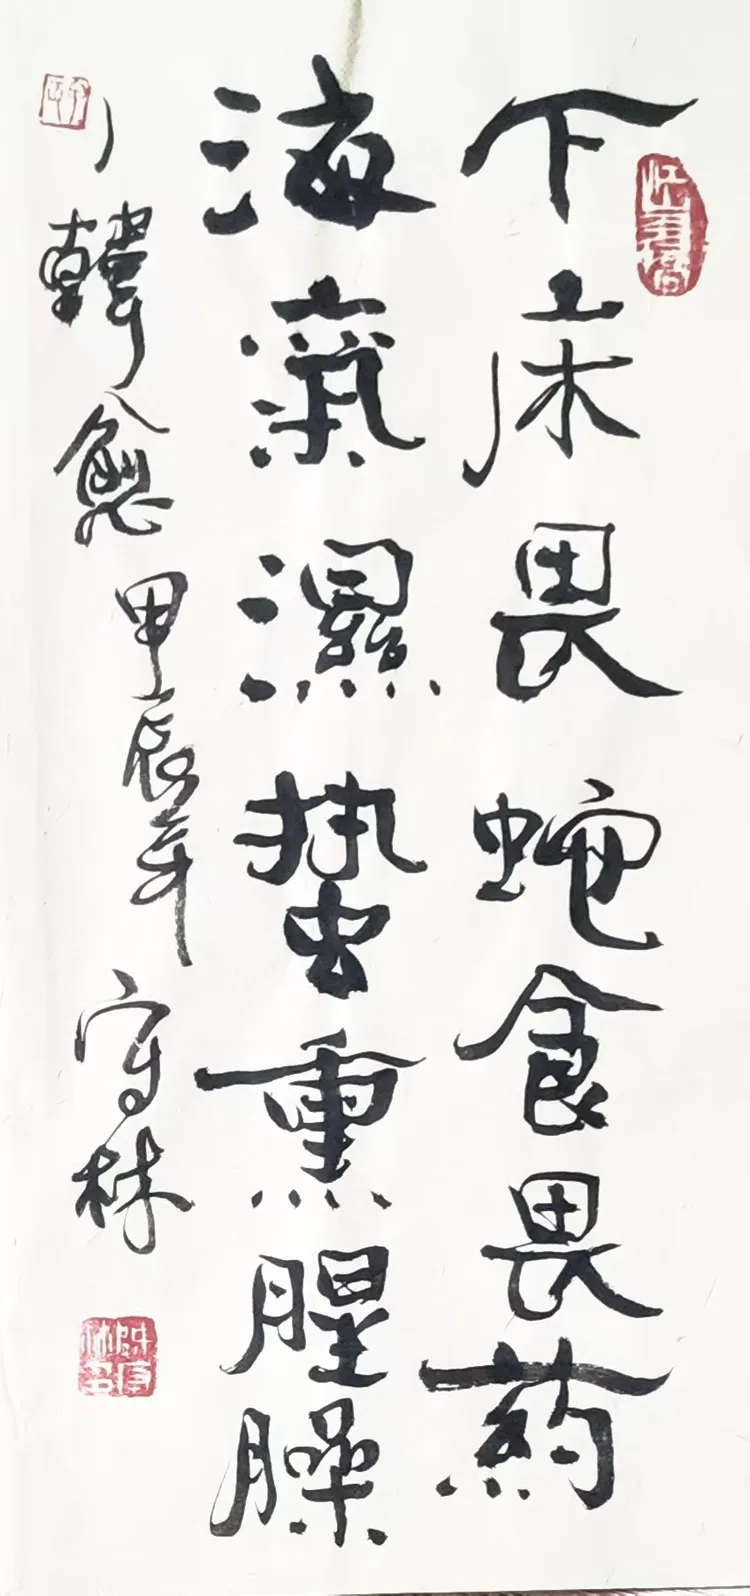 下床畏蛇食畏药
海氣濕蟄熏腥臊
韓愈甲辰年守林